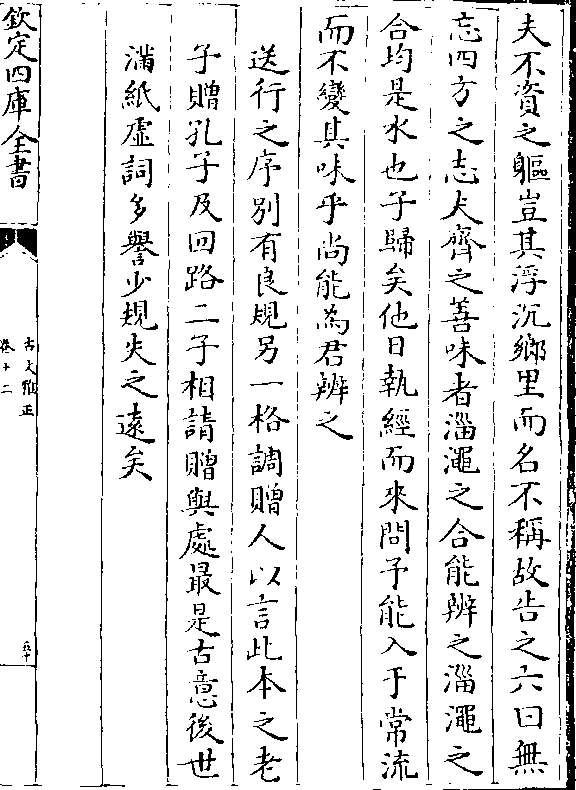 夫不資之軀豈其浮沉鄉里而名不稱故告之六曰無
忘四方之志夫齊之善味者淄澠之合能辨之淄澠之
合均是水也子歸矣他日執經而來問予能入于常流
而不變其味乎尚能為君辨之
送行之序別有良規另一格調贈人以言此本之老
子贈孔子及回路二子相請贈與處最是古意後世
滿紙虛詞多譽少規失之遠矣
欽定四庫全書
古文雅正
卷十二